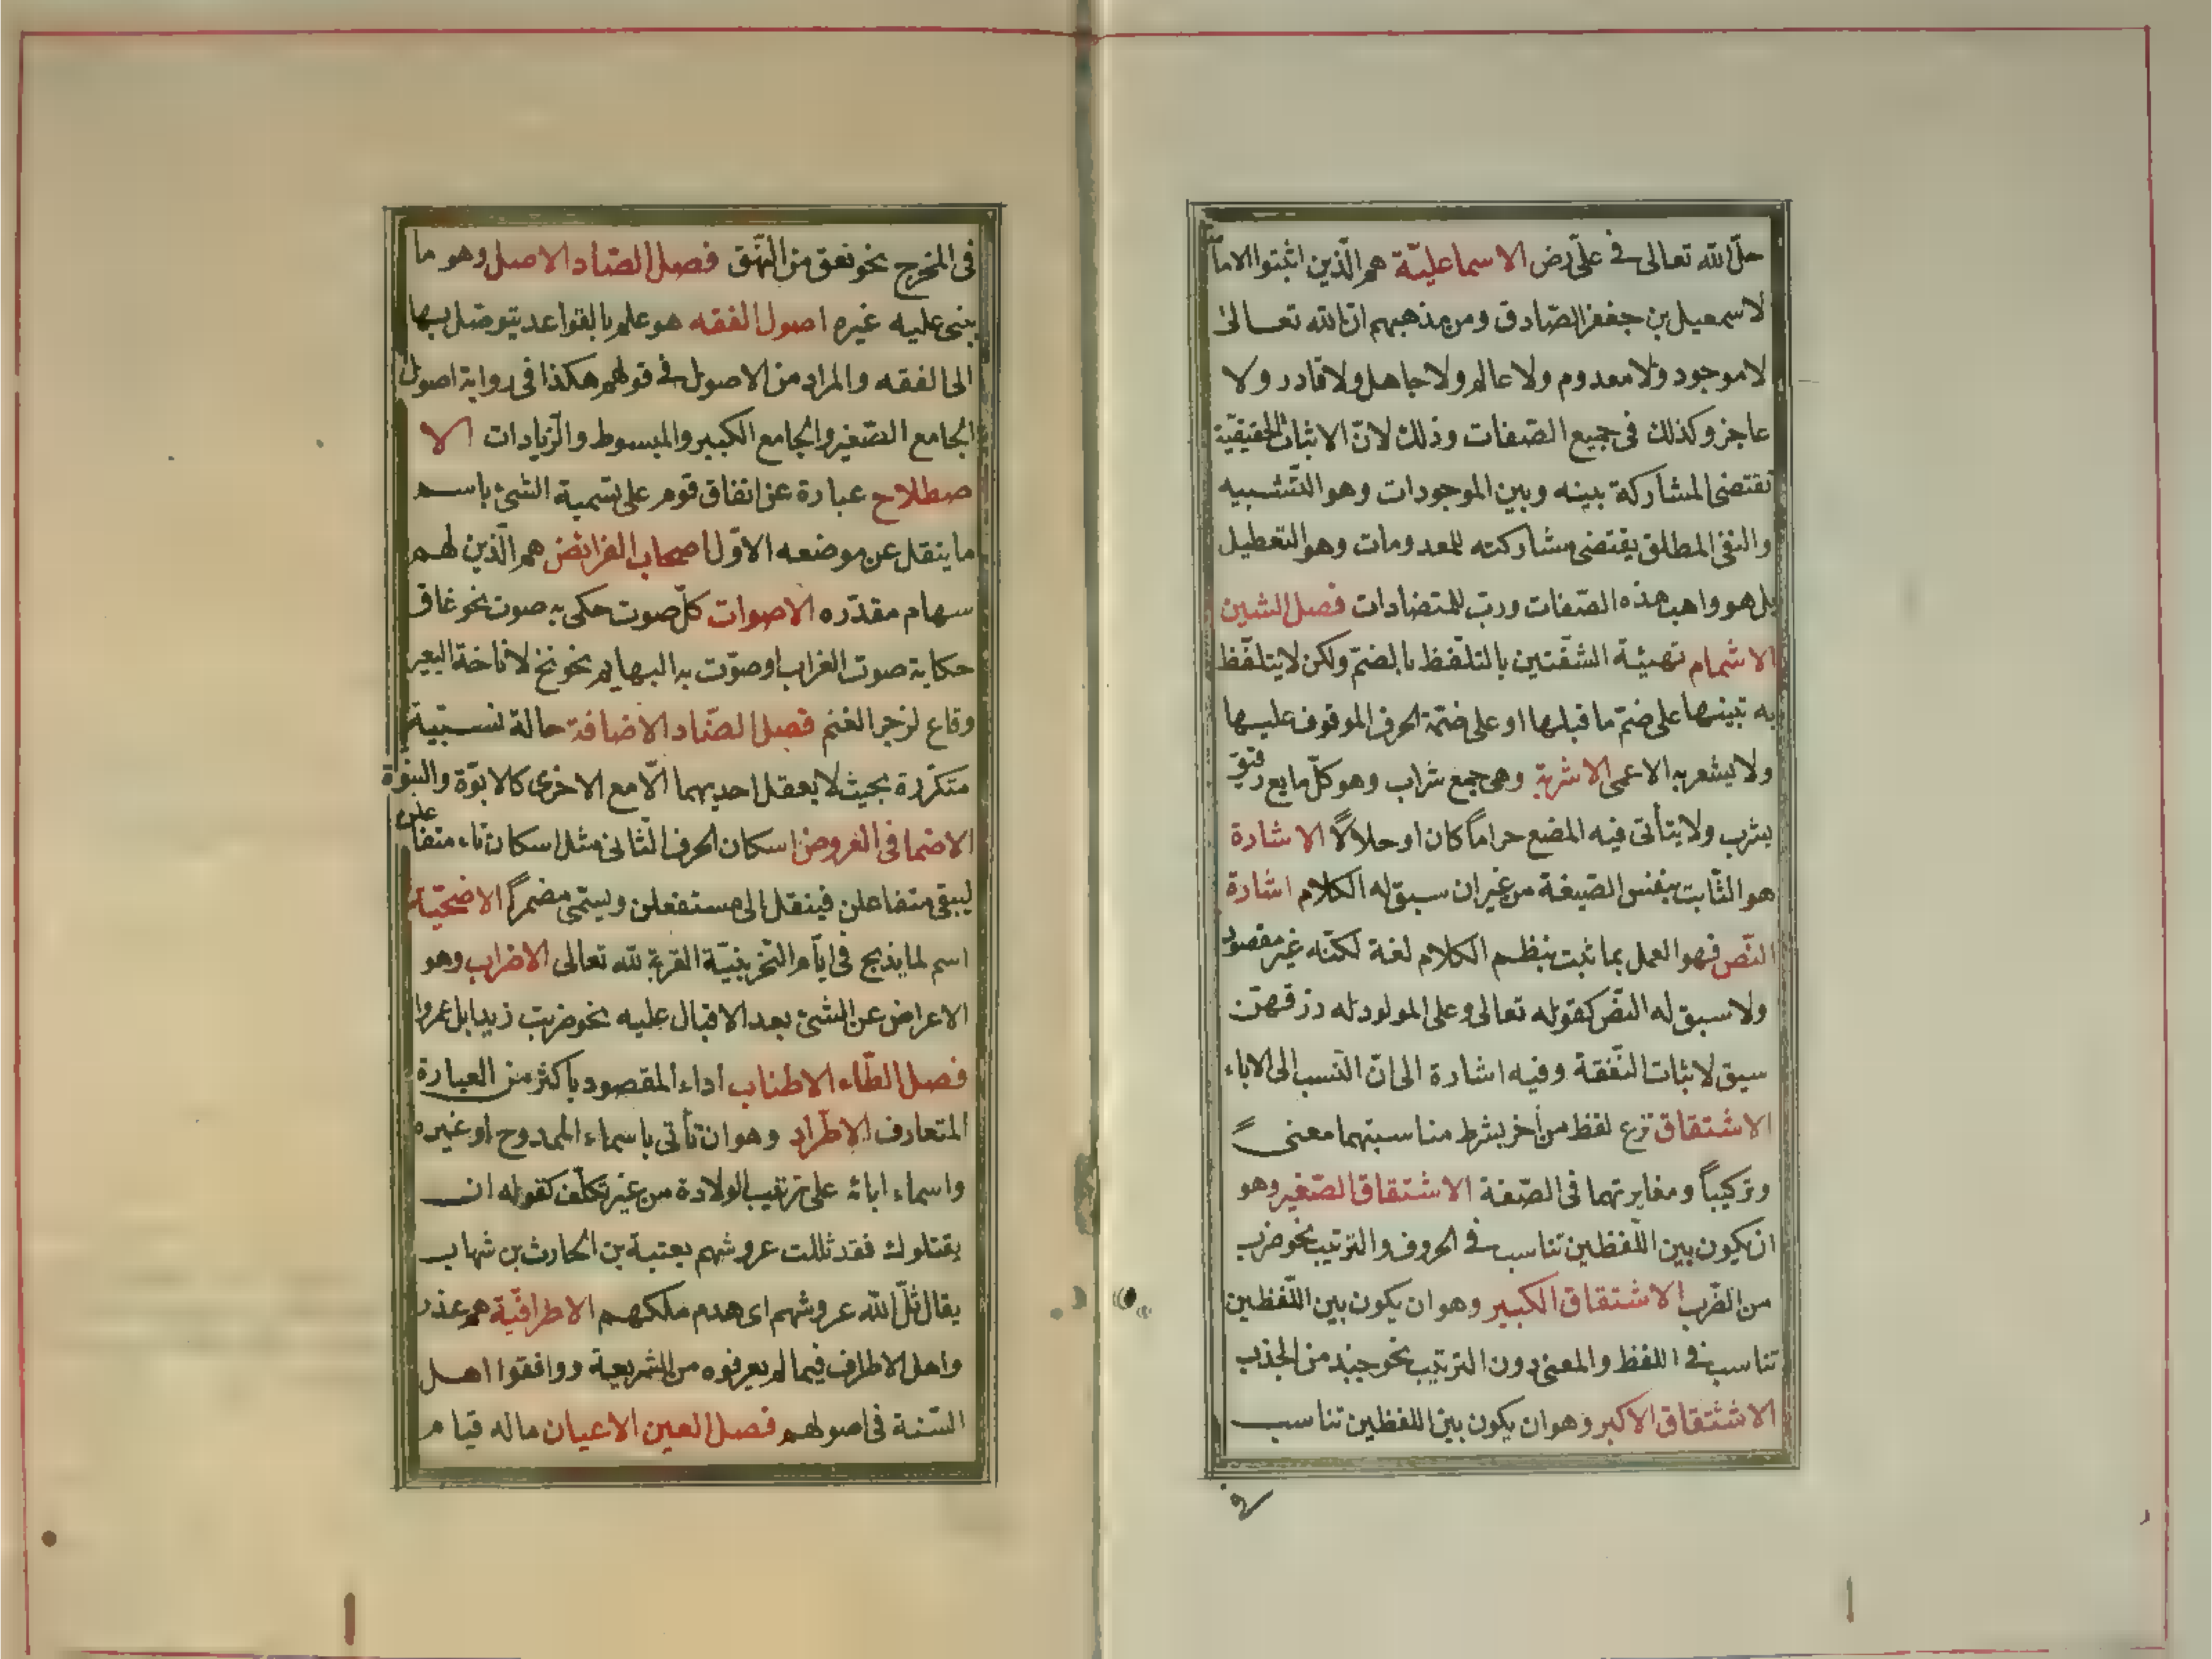 حلّ الله تعالى في علىّ رض الاسماعليّة هم الّذين اثبتوا الاما
لاسمعيل بن جعفر الصّادق ومن مذهبهم انّ الله تعالى
لا موجود ولا معدوم ولا عالم ولا جاهل ولا قادر ولا
عاجز وكذلك فى جميع الصّفات وذلك لانّ الاثبات الحقيقيّة
تقتضى المشاركة بينه وبين الموجودات وهو التّشبيه
والنفى المطلق يقتضى مشاركته للمعدومات وهو التعطيل
بل هو واهب هذه الصّفات وربّ للمتضادات فصل الشين
الاشمام تهيئة الشفّتين بالتلفّظ بالضمّ ولكن لا يتلفّظ
به تبينها على ضمّ ما قبلها او على ضمّة الحرف الموقوف عليها
ولا يشعر به الاعمى الاشربة وهى جمع شراب وهو كلّ مايع رقيق
يشرب ولا يتأتى فيه المضغ حراماً كان او حلالاً الاشارة
هو الثّابت بنفس الصّيغة من غير ان سبق له الكلام اشارة
النّص فهو العمل بما ثبت بنظم الكلام لغة لكنّه غير مقصود
ولا سبق له النصّ كقوله تعالى وعلى المولود له رزقهنّ
سيق لاثبات النّفقة وفيه اشارة الى انّ النّسب الى الاباء
الاشتقاق نزع لفظ من أخر بشرط مناسبتهما معنى
وتركيباً ومغايرتهما فى الصّغة الاشتقاق الصّغير وهو
ان يكون بين اللّفظين تناسب في الحروف والترتيب نحو ضرب
من الضّرب الاشتقاق الكبير وهو ان يكون بين اللّفظين
تناسب في اللفظ والمعنى دون الترتيب نحو جبذ من الجذب
الاشتقاق الاكبر وهو ان يكون بين اللفظين تناسب
في
فى المخرج نحو نعق من النّهق فصل الصّاد الاصل وهو ما
يبنى عليه غيره اصول الفقه هو علم بالقواعد يتوصّل بها
الى الفقه والمراد من الاصول في قولهم هكذا فى رواية اصول
الجامع الصّغير والجامع الكبير والمبسوط والزّيادات الا
صطلاح عبارة عن اتفاق قوم على تسمية الشئ باسم
ما ينقل عن موضعه الاوّل اصحاب الفرائض هم الّذين لهم
سهام مقدّره الاصوات كلّ صوت حكى به صوت نحو غاق
حكاية صوت الغراب او صوّت به البهايم نحو نخ لاناخة البعير
وقاع لزجر الغنم فصل الضّاد الاضافة حالة نسبتية
متكرّرة بحيث لا يعقل احديهما الّا مع الاخرى كالابوّة والبنوّة
الاضما فى العروض اسكان الحرف الثّانى مثل اسكان تاء متفاعلن
ليبقى متفاعلن فينقل الى مستفعلن ويسمّى مضمراً الاضحيّة
اسم لما يذبح فى ايّام النّحر بنيّة القربة لله تعالى الاضراب وهو
الاعراض عن الشئ بعد الاقبال عليه نحو ضربت زيدا بل عمروا
فصل الطّاء الاطناب اداء المقصود باكثر من العبارة
المتعارف الاطّراد وهو ان تأتى باسماء الممدوح او غيره
واسماء ابائه على ترتيب الولادة من غير تكلّف كقوله ان
يقتلوك فقد ثللت عروشهم بعتبة بن الحارث بن شهاب
يقال ثلّ الله عروشهم اى هدم ملكهم الاطرافيّة هم عذر
واهل الاطراف فيما لم يعرفوه من الشريعة ووافقوا اهل
السّنة فى اصولهم فصل العين الاعيان ماله قيام